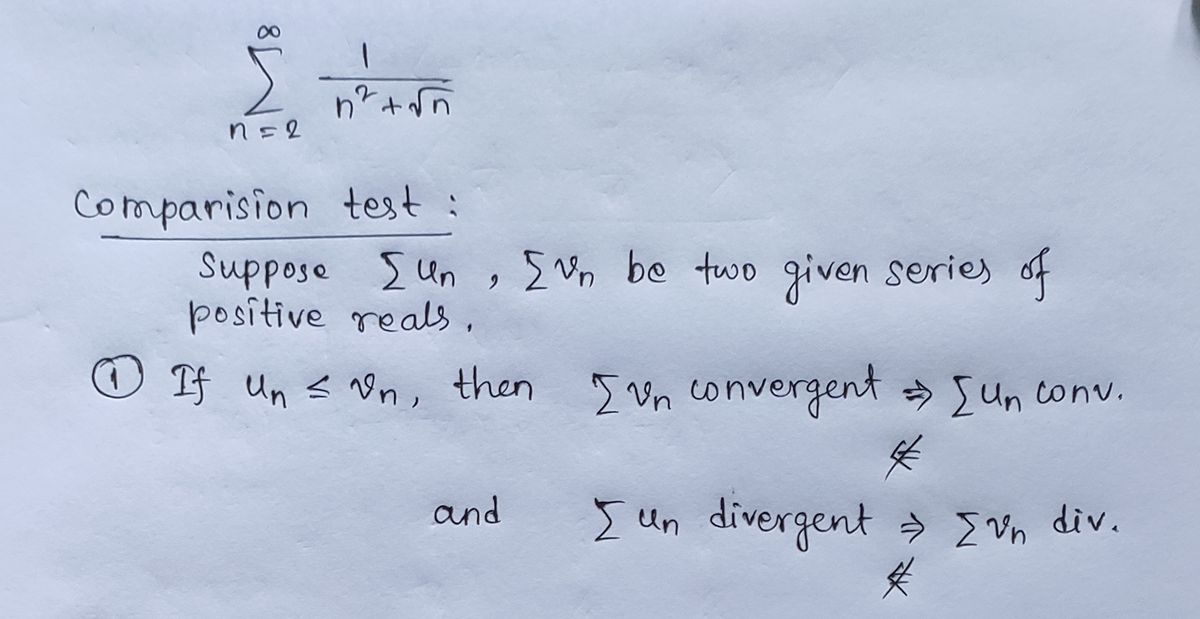 ∞
∑ 1/(n² + √n)
n = 2
Comparision test :
Suppose ∑un , ∑vn be two given series of
positive reals.
① If un ≤ vn, then ∑vn convergent ⇒ ∑un conv.
⇍
and ∑un divergent ⇒ ∑vn div.
⇍